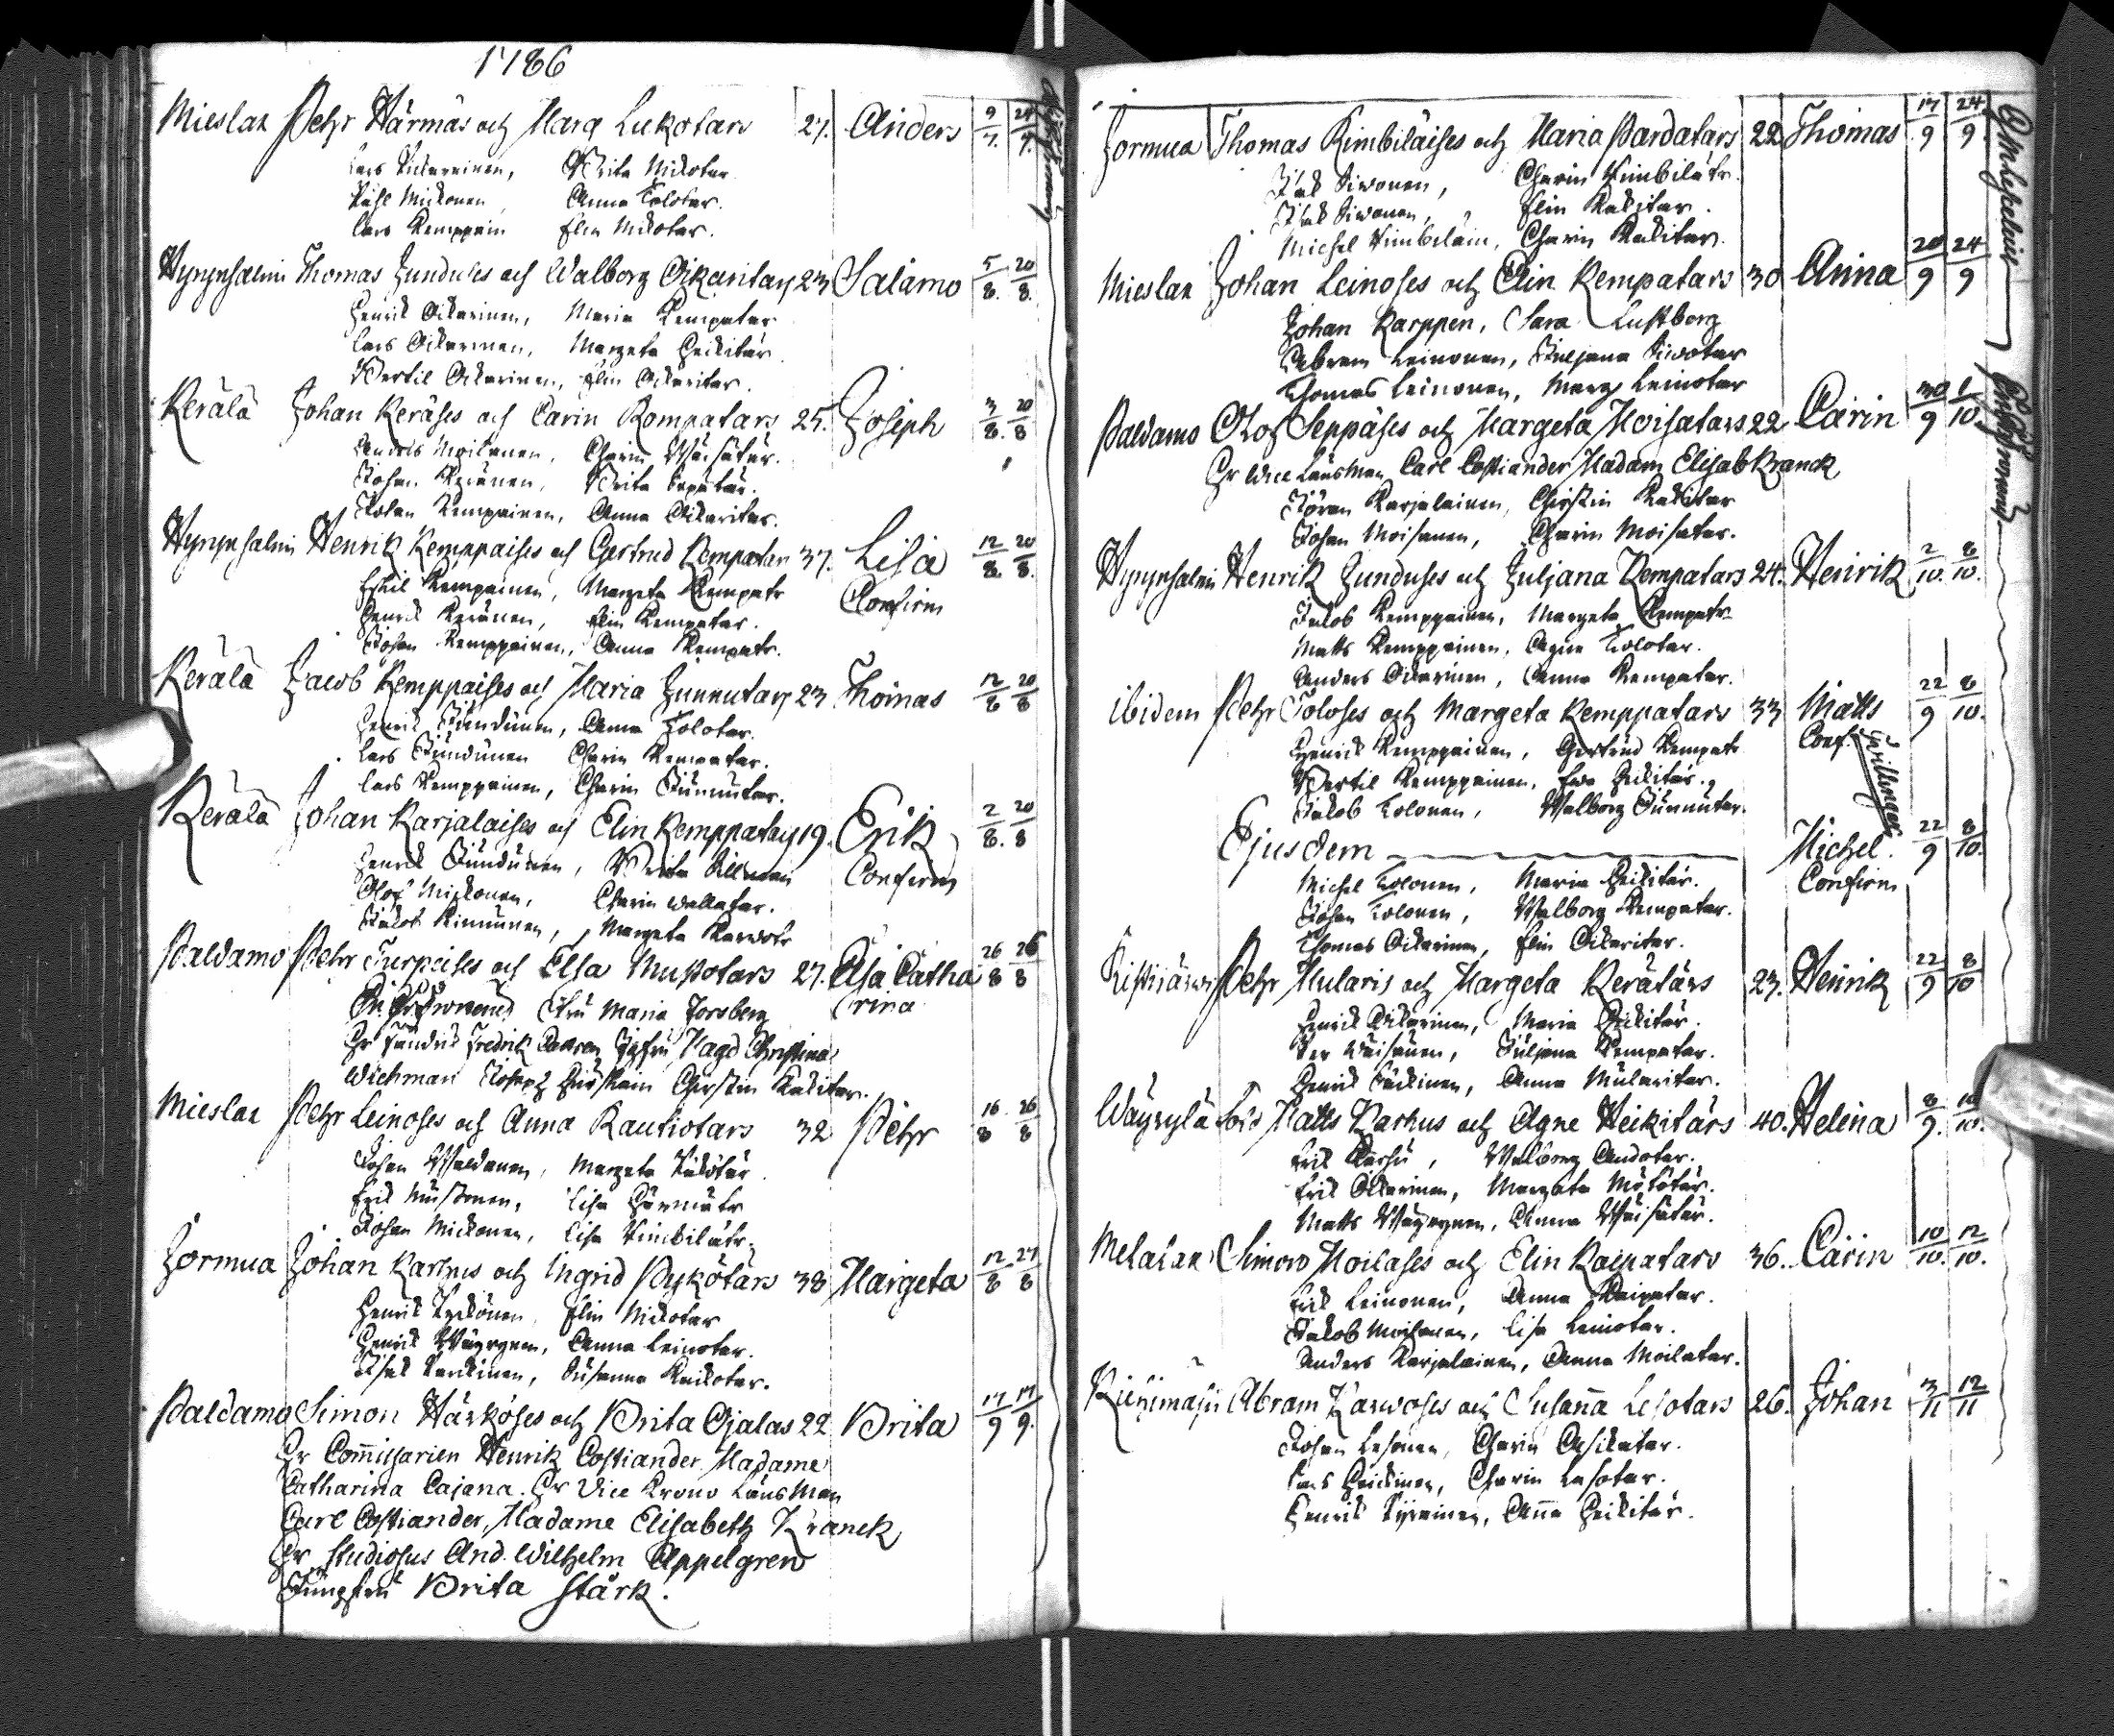 1786
Mieslax Pehr Härmäs och Marg Lukotars 27. Anders 9/7. 24/7.
Lars Brita Mickotar
Påhl Mickonen Anna Tolotar.
Lars Kemppain Elin Mickotar.
Hyrynsalmi Thomas Junduses och Walborg Oikaritars 23 Salamo 5/8. 20/8.
Henrik Oikarinen, Maria Kempatar
Lars Oikarinen, Margeta Heikitär
Bertil Oikarinen, Elin Oikaritar.
Kerälä Johan Keräses och Carin Kompatars 25. Joseph 3/8. 20/8
Anders Moilanen, Charin Wäisätär.
Johan Keränen, Brita Sepätär.
Johan Kempainen, Anna Oikaritar.
Hyrynsalmi Henrik Kemppaises och Gertrud Kempatar 37. Lisa 12/8. 20/8.
Eskil Kempainen, Margeta Kempatr Confirm
Henrik Keränen, Elin Kempatar.
Johan Kemppainen, Anna Kempatr.
Kerälä Jacob Kemppaises och Maria Junnutars 23 Thomas 12/8 20/8
Henrik Jundunen, Anna Tolotar.
Lars Jundunen Charin Kempatar.
Lars Kemppainen, Charin Junnutar.
Kerälä Johan Karjalaises och Elin Kemppatars 19. Erik 2/8. 20/8
Henrik Jundunen, Brita Confirm
Olof Mickonen, Charin Wallatar.
Jakob Kinnunen, Margeta Karwotr
Paldamo Pehr Turpeises och Elsa Mustotars 27. Elsa Catha 26/8 26/8
Fru Maria Forsberg rina
Hr Fändrik Fredrik Jgfru Magd Christina
Wichman Joseph Cherstin Rakitar.
Mieslax Pehr Leinoses och Anna Rautiotars 32 Pehr 16/8 26/8
Johan Waldanen, Margeta
Erik Mustonen, Lisa Härmätr
Johan Mickonen, Lisa Kimbilätr.
Jormua Johan Karhus och Ingrid Pykötärs 38 Margeta 12/8 27/8
Henrik Elin Mickotar
Henrik Wäyrynen, Anna Leinotar.
Isak Susanna
Paldamo Simon Härköses och Brita Ojalas 22 Brita 17/9 17/9.
Hr Commissarien Henrik Costiander Madame
Catharina Cajana. Hr Vice Krono LänsMan
Carl Costiander, Madame Elisabeth Kranck
Hr Studiosus And. Wilhelm Appelgren
Jungfru Brita Stårk.
Jormua Thomas Kimbiläises och Maria Pardatars 22 Thomas 17/9 24/9
Isak Siwonen, Charin Kimbilätr.
Isak Siwonen, Elin Rakitar.
Michel Kimbiläin, Charin Rakitar.
Mieslax Johan Leinoses och Elin Kempatars 30 Anna 20/9 24/9
Johan Karppen, Sara Lustborg
Abram Leinonen, Juljana Siwotar
Thomas Leinonen, Marg Leinotar
Paldamo Olof Seppäses och Margeta Moisatars 22 Carin 30/9 1/10
Hr Vice LänsMan Carl Costiander Madam Elisab Kranck
Jöran Karjalainen, Cherstin Rakitar
Johan Moisanen, Charin Moisatar.
Hyrynsalmi Henrik Junduses och Juljana Kempatars 24. Henrik 2/10. 8/10.
Jakob Kemppainen, Margeta Kempatr
Matts Kemppainen, Agne Tolotar.
Anders Oikarinen, Anna Kempatar.
ibidem Pehr Toloses och Margeta Kemppatars 33 Matts 22/9 8/10.
Henrik Kemppainen, Gertrud Kempatr Conf. Tvillingar
Bertil Kemppainen, Ewa Heikitär.
Jakob Tolonen, Walborg Junnutar.
Ejusdem Michel 22/9 8/10.
Michel Tolonen, Maria Heikitär. Confirm
Johan Tolonen, Walborg Kempatar.
Thomas Oikarinen, Elin Oikaritar.
Ristijärwi Pehr Mularis och Margeta Kerätärs 23. Henrik 22/9 8/10
Henrik Oikarinen, Maria Heikitär.
Per Wäisänen, Juljana Kempatar.
Henrik Anna Mularitar.
Wäyrylä Matts Karhus och Agne Heikitärs 40. Helena 8/9. 10/10.
Erik Karhu, Walborg
Erik Oikarinen, Margeta
Matts Wäyrynen, Anna Wäisätär.
Melalax Simon Moilases och Elin Kaipatars 36. Carin 10/10. 12/10.
Erik Leinonen, Anna Kaipatar.
Jakob Moisanen, Lisa Leinotar.
Anders Karjalainen, Anna Moilatar.
Abram Karwoses och Susanna Lesotars 26. Johan 3/11 12/11
Johan Lesonen, Charin
Lars Heickinen, Charin Lesotar.
Henrik Anna Heikitär.